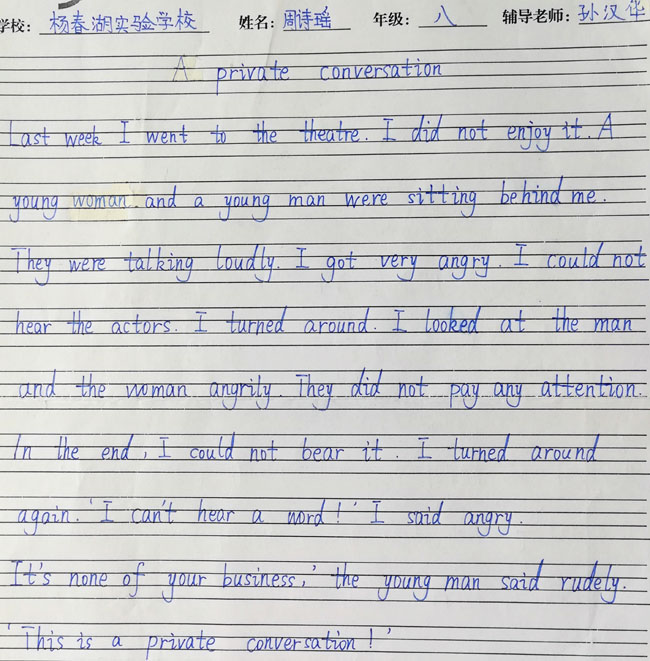 学校: 杨春湖实验学校 姓名: 周诗瑶 年级: 八 辅导老师: 孙汉华
A private conversation
Last week I went to the theatre. I did not enjoy it. A
young woman and a young man were sitting behind me.
They were talking loudly. I got very angry. I could not
hear the actors. I turned around. I looked at the man
and the woman angrily. They did not pay any attention.
In the end, I could not bear it. I turned around
again. 'I can't hear a word!' I said angry.
It's none of your business,' the young man said rudely.
'This is a private conversation!'